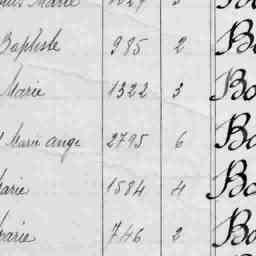 Marie 1029 3 Bo
Baptiste 985 2 Bo
Marie 1322 3 Bo
Marie ange 2795 6 Bo
Marie 1584 4 Bo
Marie 746 2 Bo